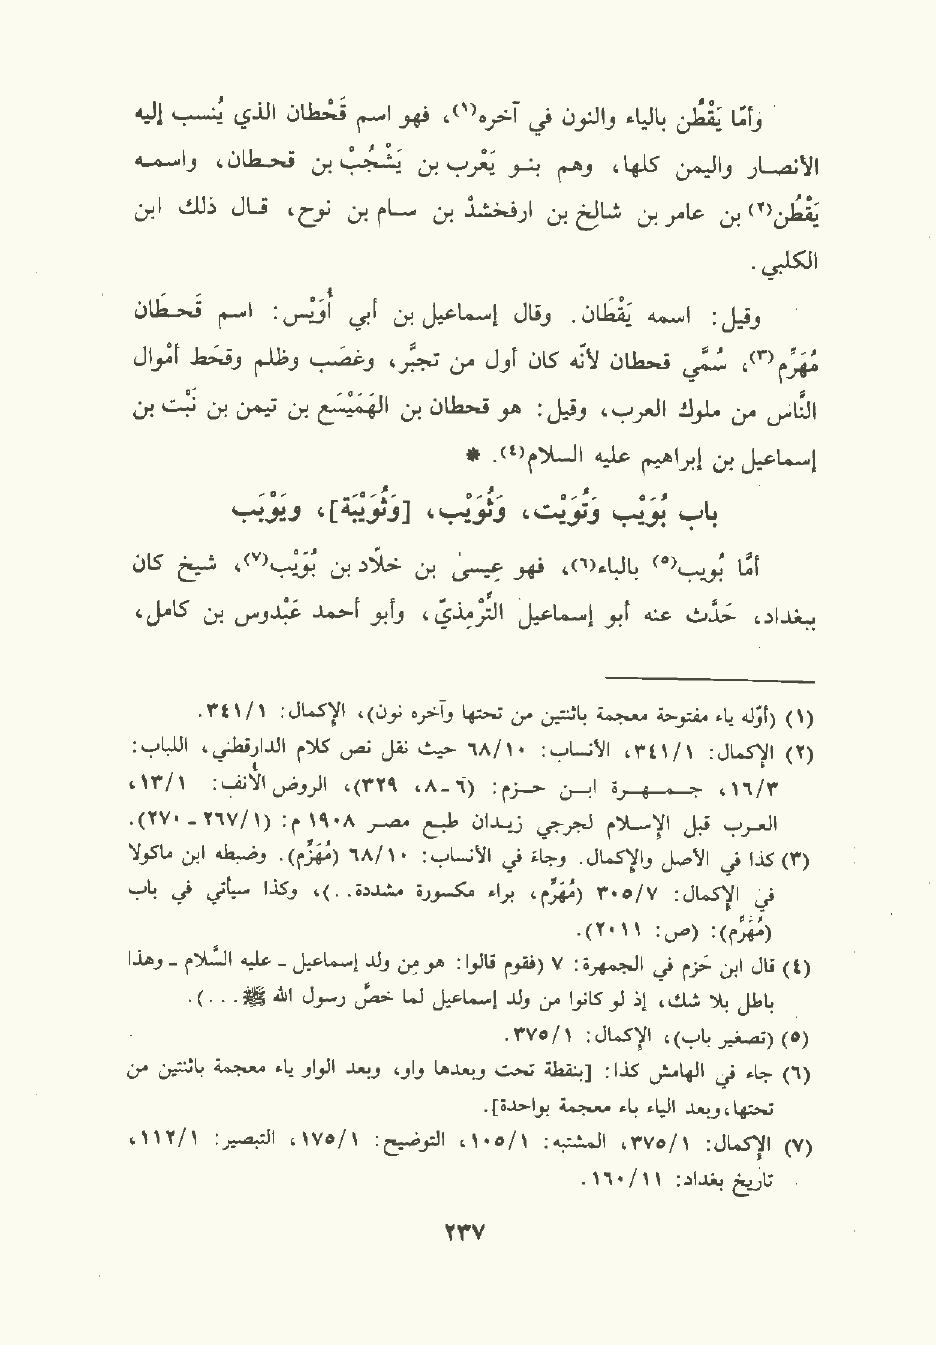 وأمّا يَقْطُن بالياء والنون في آخره(١)، فهو اسم قَحْطان الذي يُنسب إليه
الأنصار واليمن كلها، وهم بنو يَعْرب بن يَشْجُب بن قحطان، واسمه
يَقْطُن(٢) بن عامر بن شالِخ بن ارفخشذ بن سام بن نوح، قال ذلك ابن
الكلبي.
وقيل: اسمه يَقْطَان. وقال إسماعيل بن أبي أُوَيْس: اسم قَحطَان
مُهَزِّم(٣)، سُمِّي قحطان لأنّه كان أول من تجبَّر، وغصَب وظلم وقحَط أمْوال
النّاس من ملوك العرب، وقيل: هو قحطان بن الهَمَيْسَع بن تيمن بن نَبْت بن
إسماعيل بن إبراهيم عليه السلام(٤). *
باب بُوَيْب وَتُوَيْت، وَثُوَيْب، [وَثُوَيْبَة]، ويَوْيَب
أمّا بُويب(٥) بالباء(٦)، فهو عيسىٰ بن خلّاد بن بُوَيْب(٧)، شيخ كان
ببغداد، حَدَّث عنه أبو إسماعيل التِّرْمِذيّ، وأبو أحمد عَبْدوس بن كامل،
(١) (أوّله ياء مفتوحة معجمة باثنتين من تحتها وآخره نون)، الإكمال: ٣٤١/١.
(٢) الإكمال: ٣٤١/١، الأنساب: ٦٨/١٠ حيث نقل نص كلام الدارقطني، اللباب:
١٦/٣، جمهرة ابن حزم: (٦-٨، ٣٢٩)، الروض الأنف: ١٣/١،
العرب قبل الإسلام لجرجي زيدان طبع مصر ١٩٠٨ م: (٢٦٧/١ - ٢٧٠).
(٣) كذا في الأصل والإكمال. وجاء في الأنساب: ٦٨/١٠ (مُهَزِّم). وضبطه ابن ماكولا
في الإكمال: ٣٠٥/٧ (مُهَرِّم، براء مكسورة مشددة..)، وكذا سيأتي في باب
(مُهَرِّم): (ص: ٢٠١١).
(٤) قال ابن حَزم في الجمهرة: ٧ (فقوم قالوا: هو مِن ولد إسماعيل - عليه السَّلام - وهذا
باطل بلا شك، إذ لو كانوا من ولد إسماعيل لما خصَّ رسول الله ﷺ...).
(٥) (تصغير باب)، الإكمال: ٣٧٥/١.
(٦) جاء في الهامش كذا: [بنقطة تحت وبعدها واو، وبعد الواو ياء معجمة باثنتين من
تحتها، وبعد الياء باء معجمة بواحدة].
(٧) الإكمال: ٣٧٥/١، المشتبه: ١٠٥/١، التوضيح: ١٧٥/١، التبصير: ١١٢/١،
تاريخ بغداد: ١٦٠/١١.
٢٣٧